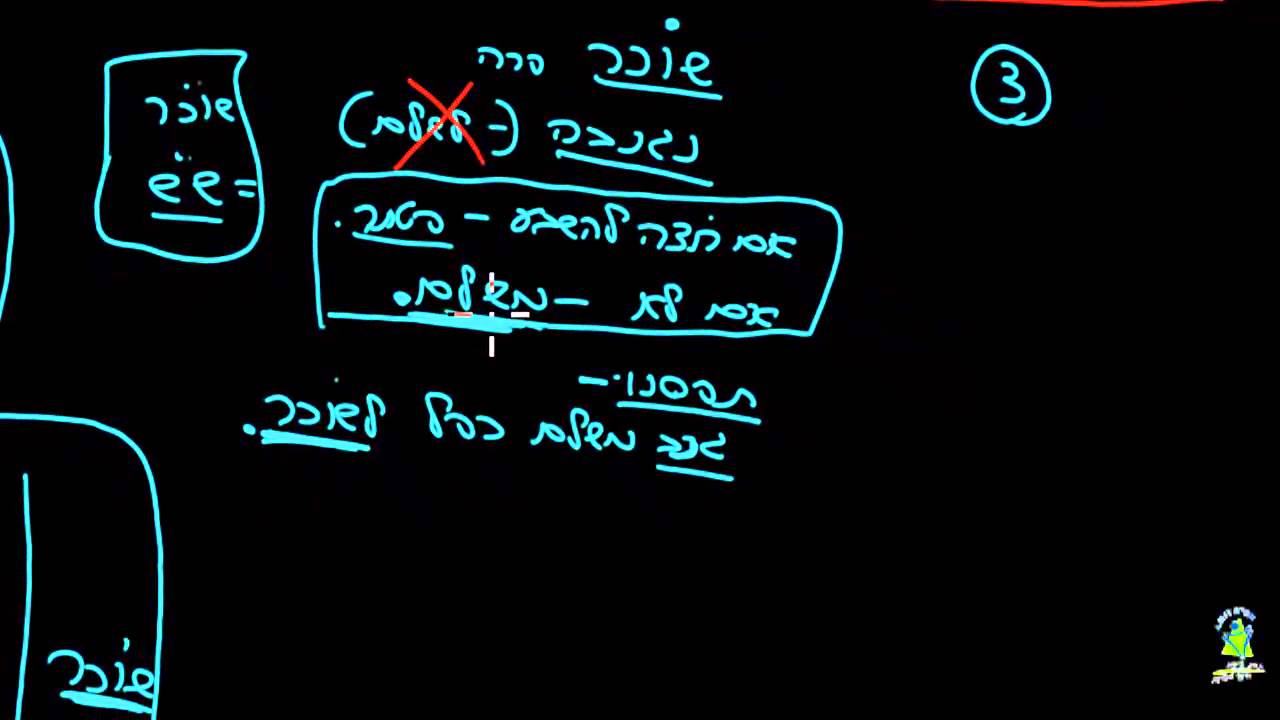 3
שוכר פרה
נגנבה (- לשלם)
אם רוצה להשבע - פטור.
אם לא - משלם.
תפסנו -
גנב משלם כפל לשוכר.
שוכר
= ש"ש
שוכר